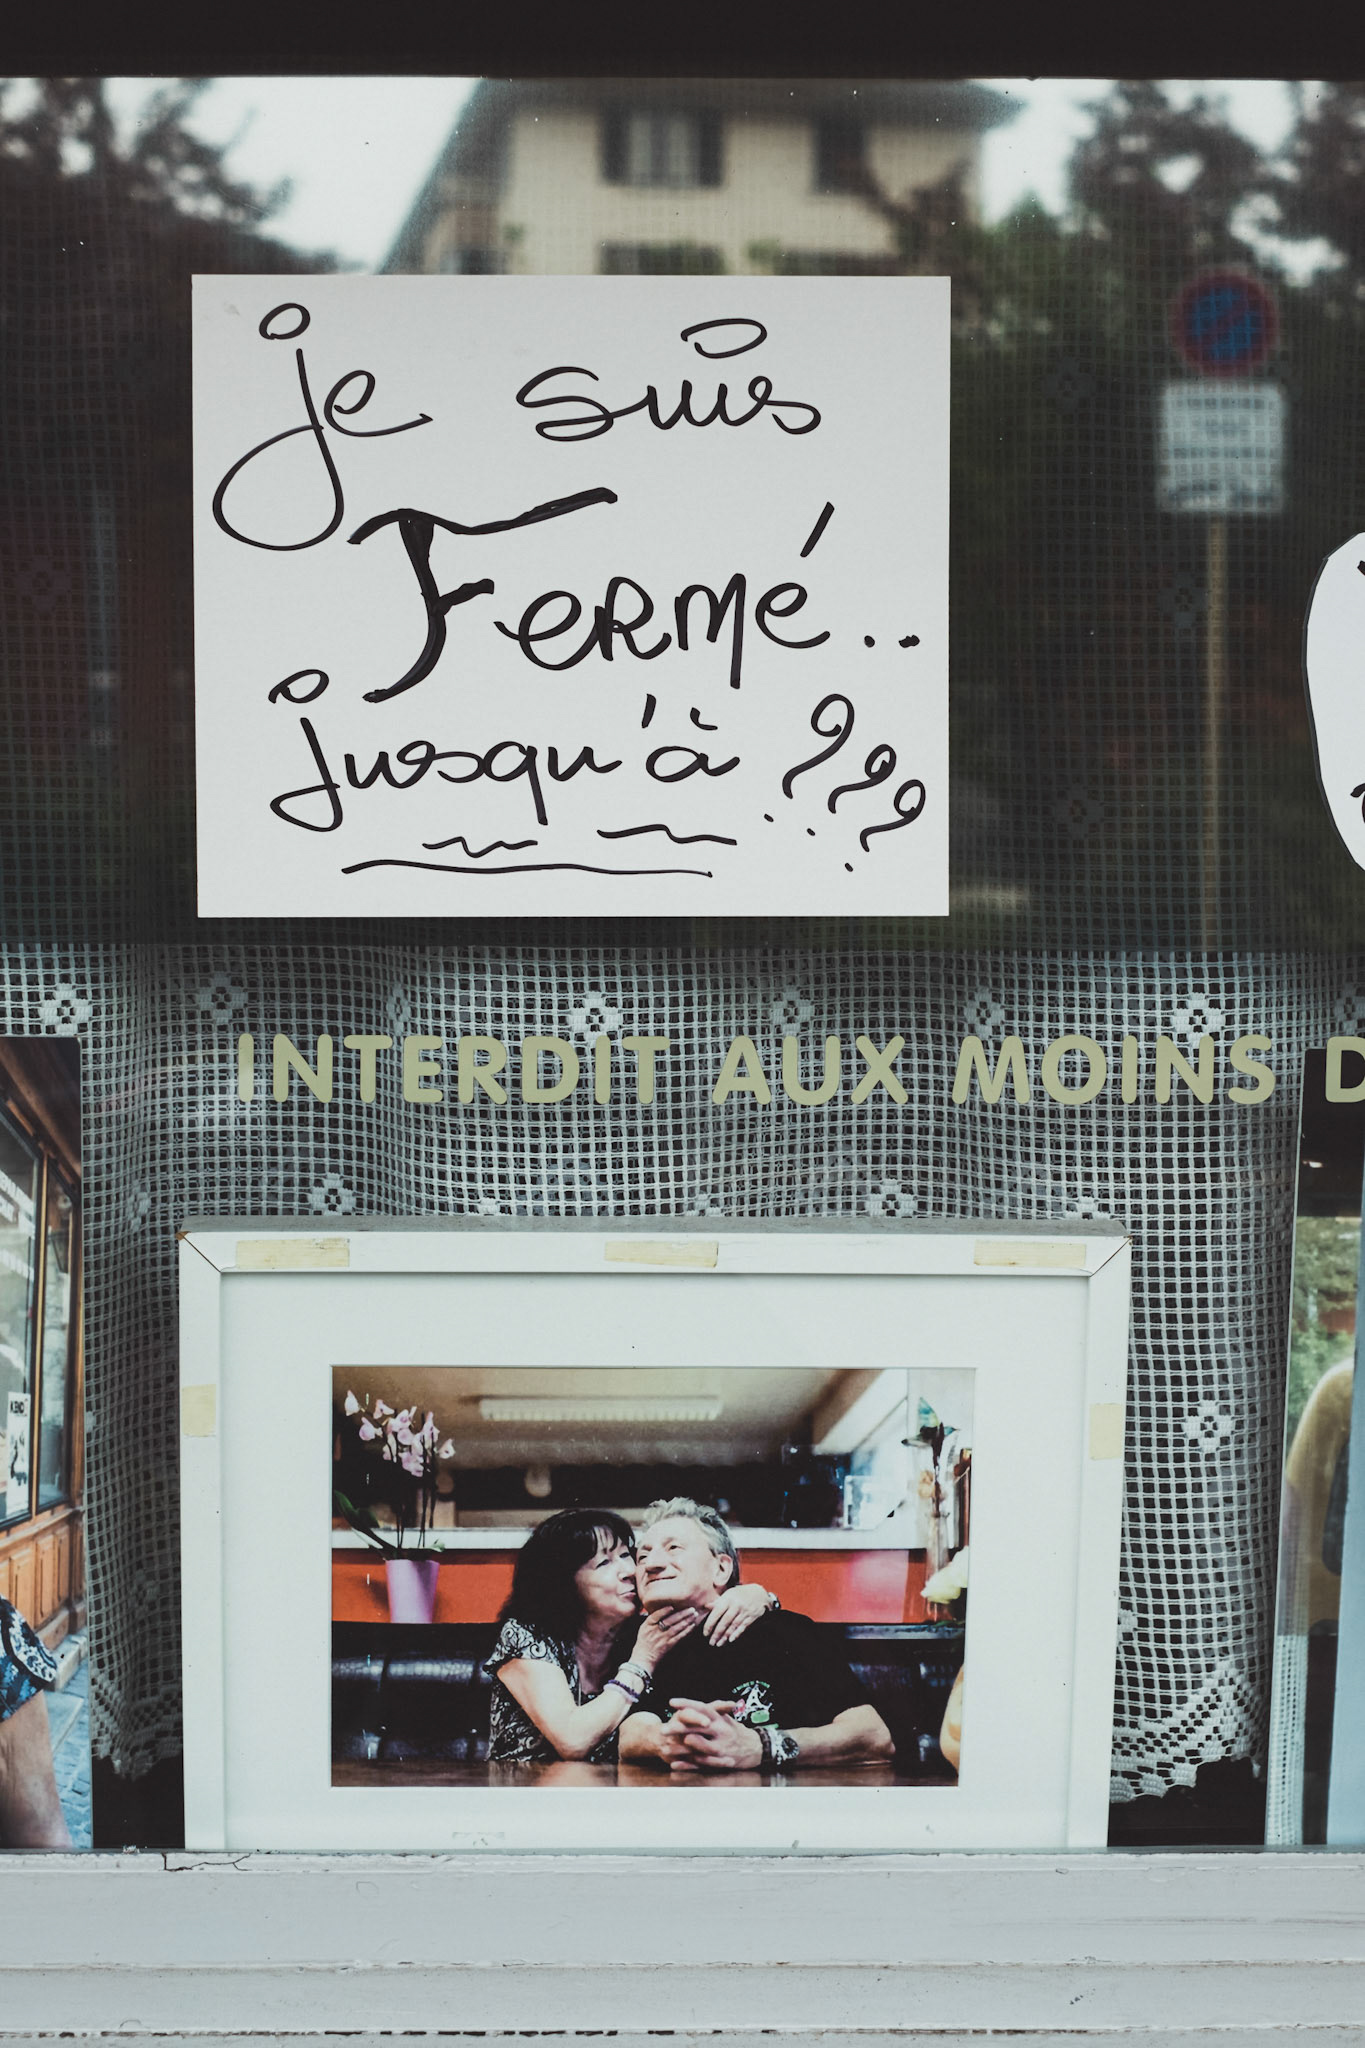 je suis
Fermé..
jusqu'à ???
INTERDIT AUX MOINS D